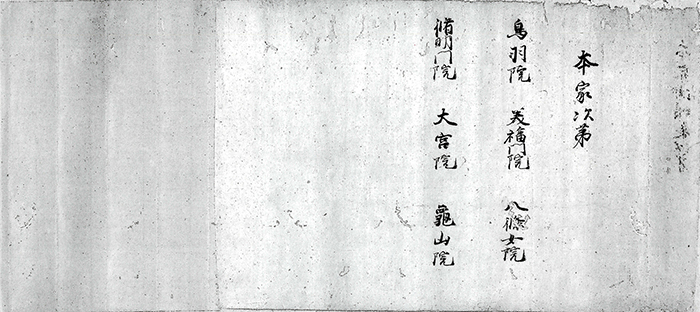 本家次第
鳥羽院 美福門院 八條女院
脩明門院 大宮院 龜山院